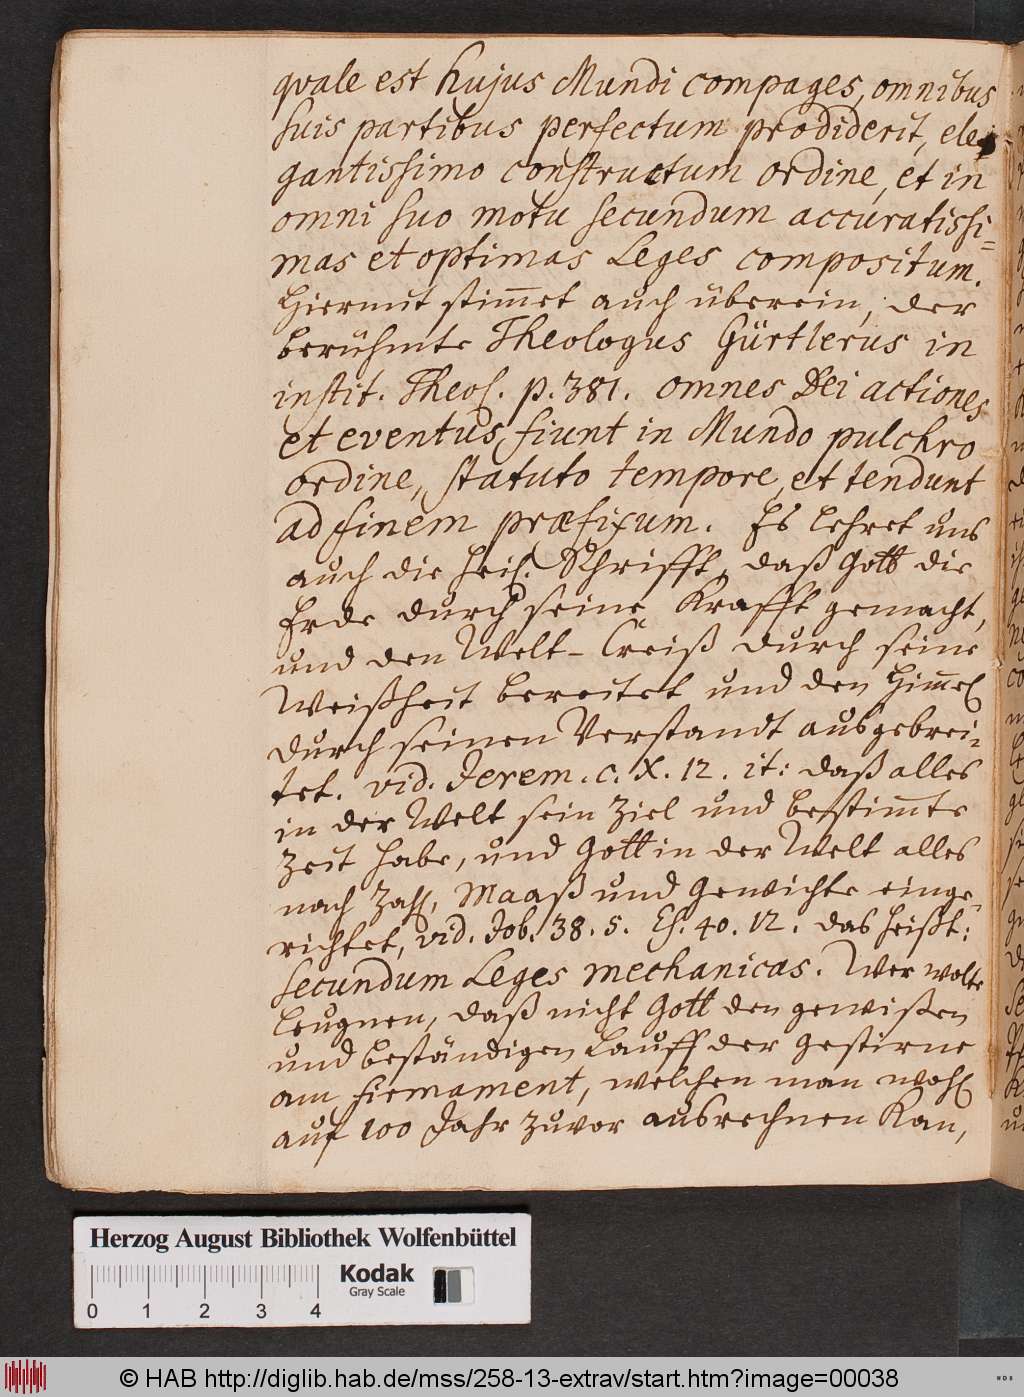 qvale est hujus Mundi compages, omnibus
suis partibus perfectum prodiderit, ele-
gantissimo constructum ordine, et in
omni suo motu secundum accuratissi=
mas et optimas Leges compositum.
Hiermit stim̄et auch überein, der
berühmte Theologus Gürtlerus in
instit. Theol. p. 381. omnes Dei actiones
et eventus fiunt in Mundo pulchro
ordine, statuto tempore, et tendunt
ad finem præfixum. Es lehret uns
auch die Heil. Schrifft, daß Gott die
Erde durch seine Krafft gemacht,
und den Welt-Creiß durch seine
Weißheit bereitet und den Him̄el
durch seinen Verstandt ausgebrei-
tet. vid. Jerem. c. X. 12. it: daß alles
in der Welt sein Ziel und bestim̄te
Zeit habe, und Gott in der Welt alles
nach Zahl, Maaß und Gewichte einge-
richtet, vid. Job. 38. 5. Es. 40. 12. das heißt:
secundum Leges mechanicas. Wer wolte
leugnen, daß nicht Gott den gewißen
und beständigen Lauff der Gestirne
am firmament, welchen man wohl
auf 100 Jahr zuvor ausrechnen Kan,
Herzog August Bibliothek Wolfenbüttel
Kodak
Gray Scale
0 1 2 3 4
© HAB http://diglib.hab.de/mss/258-13-extrav/start.htm?image=00038